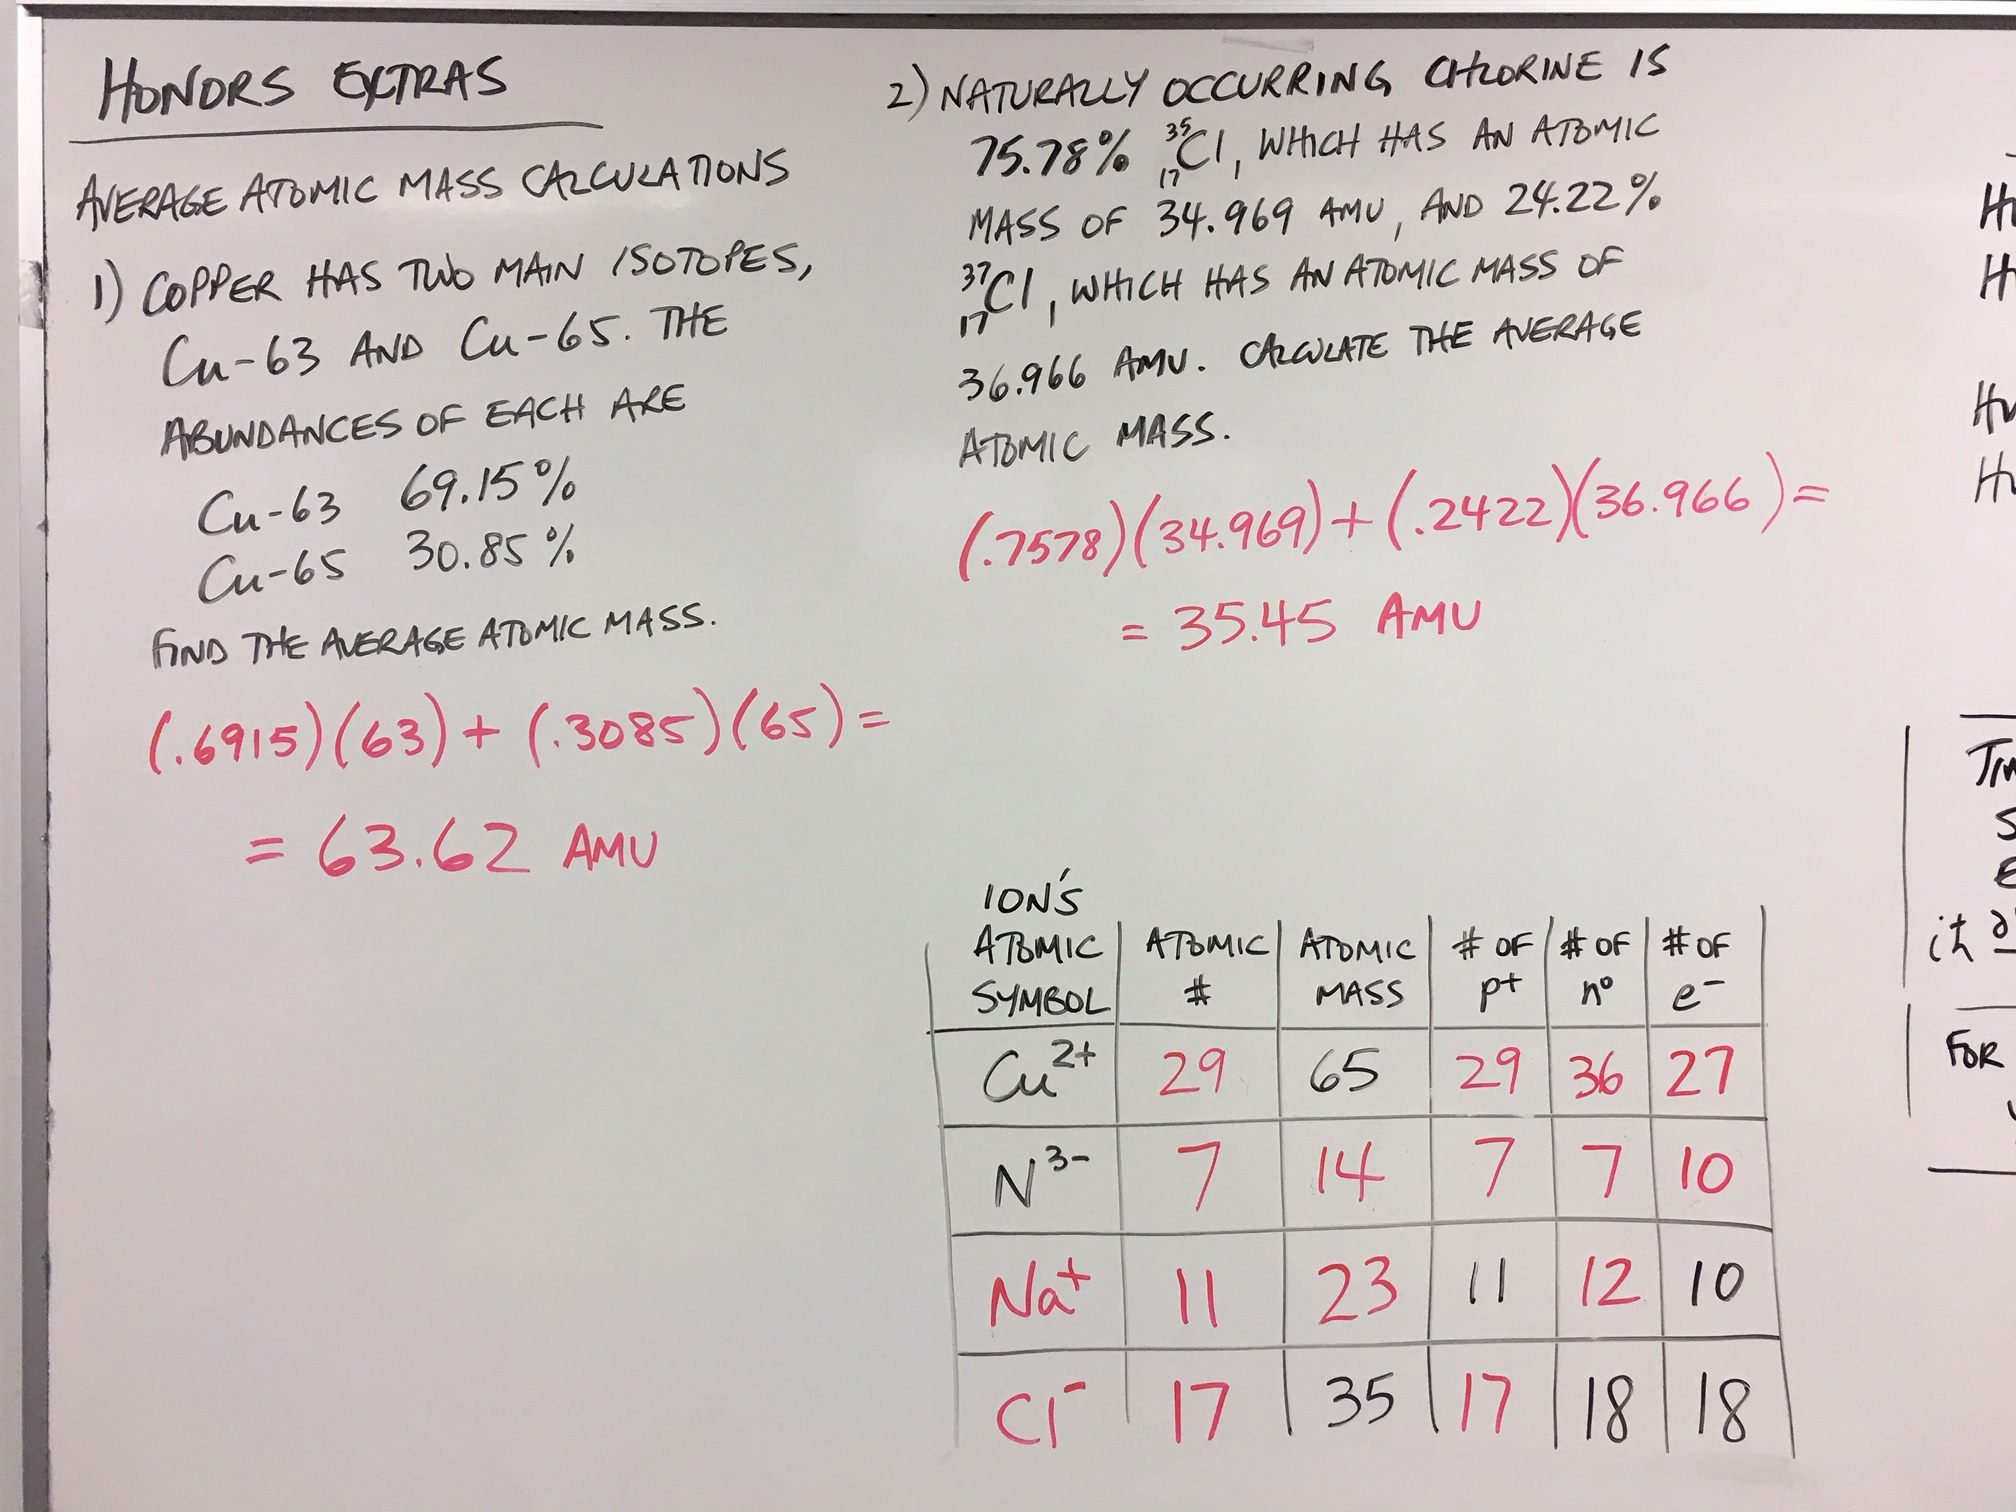 HONORS EXTRAS
AVERAGE ATOMIC MASS CALCULATIONS
1) COPPER HAS TWO MAIN ISOTOPES,
Cu-63 AND Cu-65. THE
ABUNDANCES OF EACH ARE
Cu-63 69.15%
Cu-65 30.85%
FIND THE AVERAGE ATOMIC MASS.
(.6915)(63) + (.3085)(65) =
= 63.62 AMU
2) NATURALLY OCCURRING CHLORINE IS
75.78% ³⁵₁₇Cl, WHICH HAS AN ATOMIC
MASS OF 34.969 AMU, AND 24.22%
³⁷₁₇Cl, WHICH HAS AN ATOMIC MASS OF
36.966 AMU. CALCULATE THE AVERAGE
ATOMIC MASS.
(.7578)(34.969) + (.2422)(36.966) =
= 35.45 AMU
ION'S
ATOMIC ATOMIC ATOMIC # OF # OF # OF
SYMBOL # MASS p⁺ n⁰ e⁻
Cu²⁺ 29 65 29 36 27
N³⁻ 7 14 7 7 10
Na⁺ 11 23 11 12 10
Cl⁻ 17 35 17 18 18
it
FOR